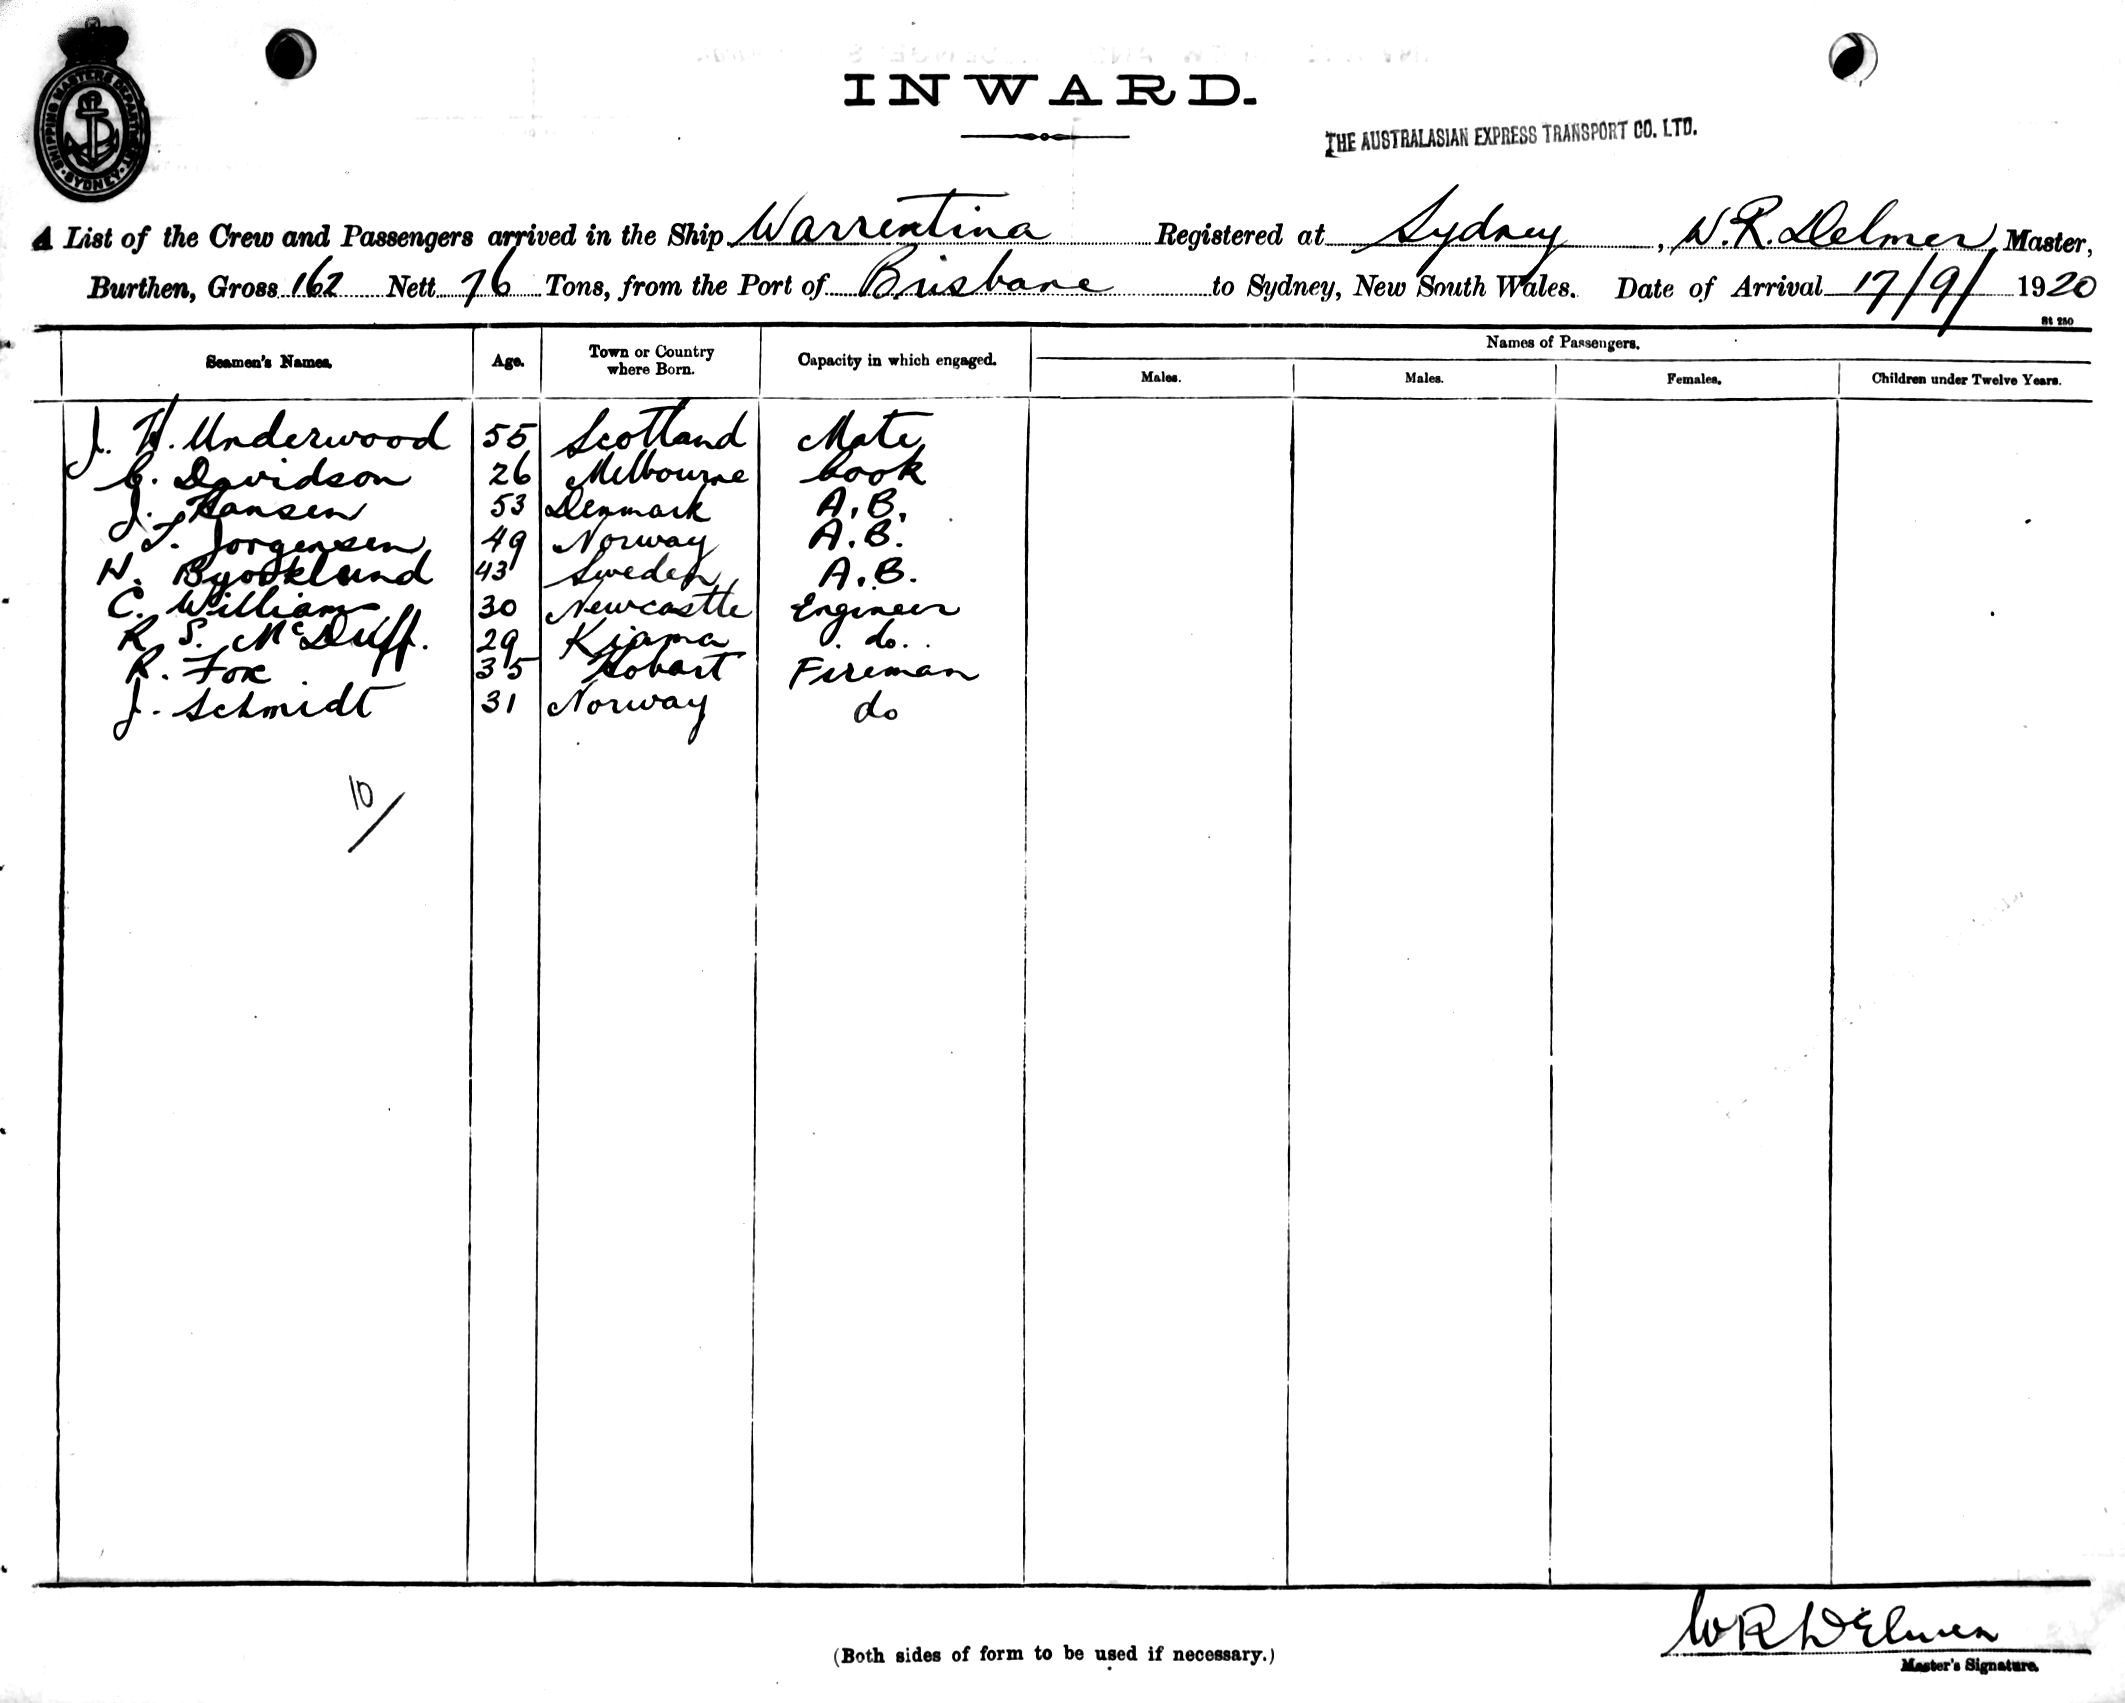 SHIPPING MASTERS DEPARTMENT SYDNEY
INWARD.
THE AUSTRALASIAN EXPRESS TRANSPORT CO. LTD.
A List of the Crew and Passengers arrived in the Ship Warrentina Registered at Sydney, W. R. Delmer, Master,
Burthen, Gross 162 Nett 76 Tons, from the Port of Brisbane to Sydney, New South Wales. Date of Arrival 17/9/ 1920
St 250
Seamen's Names. Age. Town or Country where Born. Capacity in which engaged. Names of Passengers.
Males. Males. Females. Children under Twelve Years.
J. H. Underwood 55 Scotland Mate
C. Davidson 26 Melbourne Cook
J. Hansen 53 Denmark A.B.
T. Jorgensen 49 Norway A.B.
H. Byorklund 43 Sweden A.B.
C. Williams 30 Newcastle Engineer
R. S. McDuff. 29 Kiama do.
R. Fox 35 Hobart Fireman
J. Schmidt 31 Norway do
10/
(Both sides of form to be used if necessary.)
W R Delmer
Master's Signature.